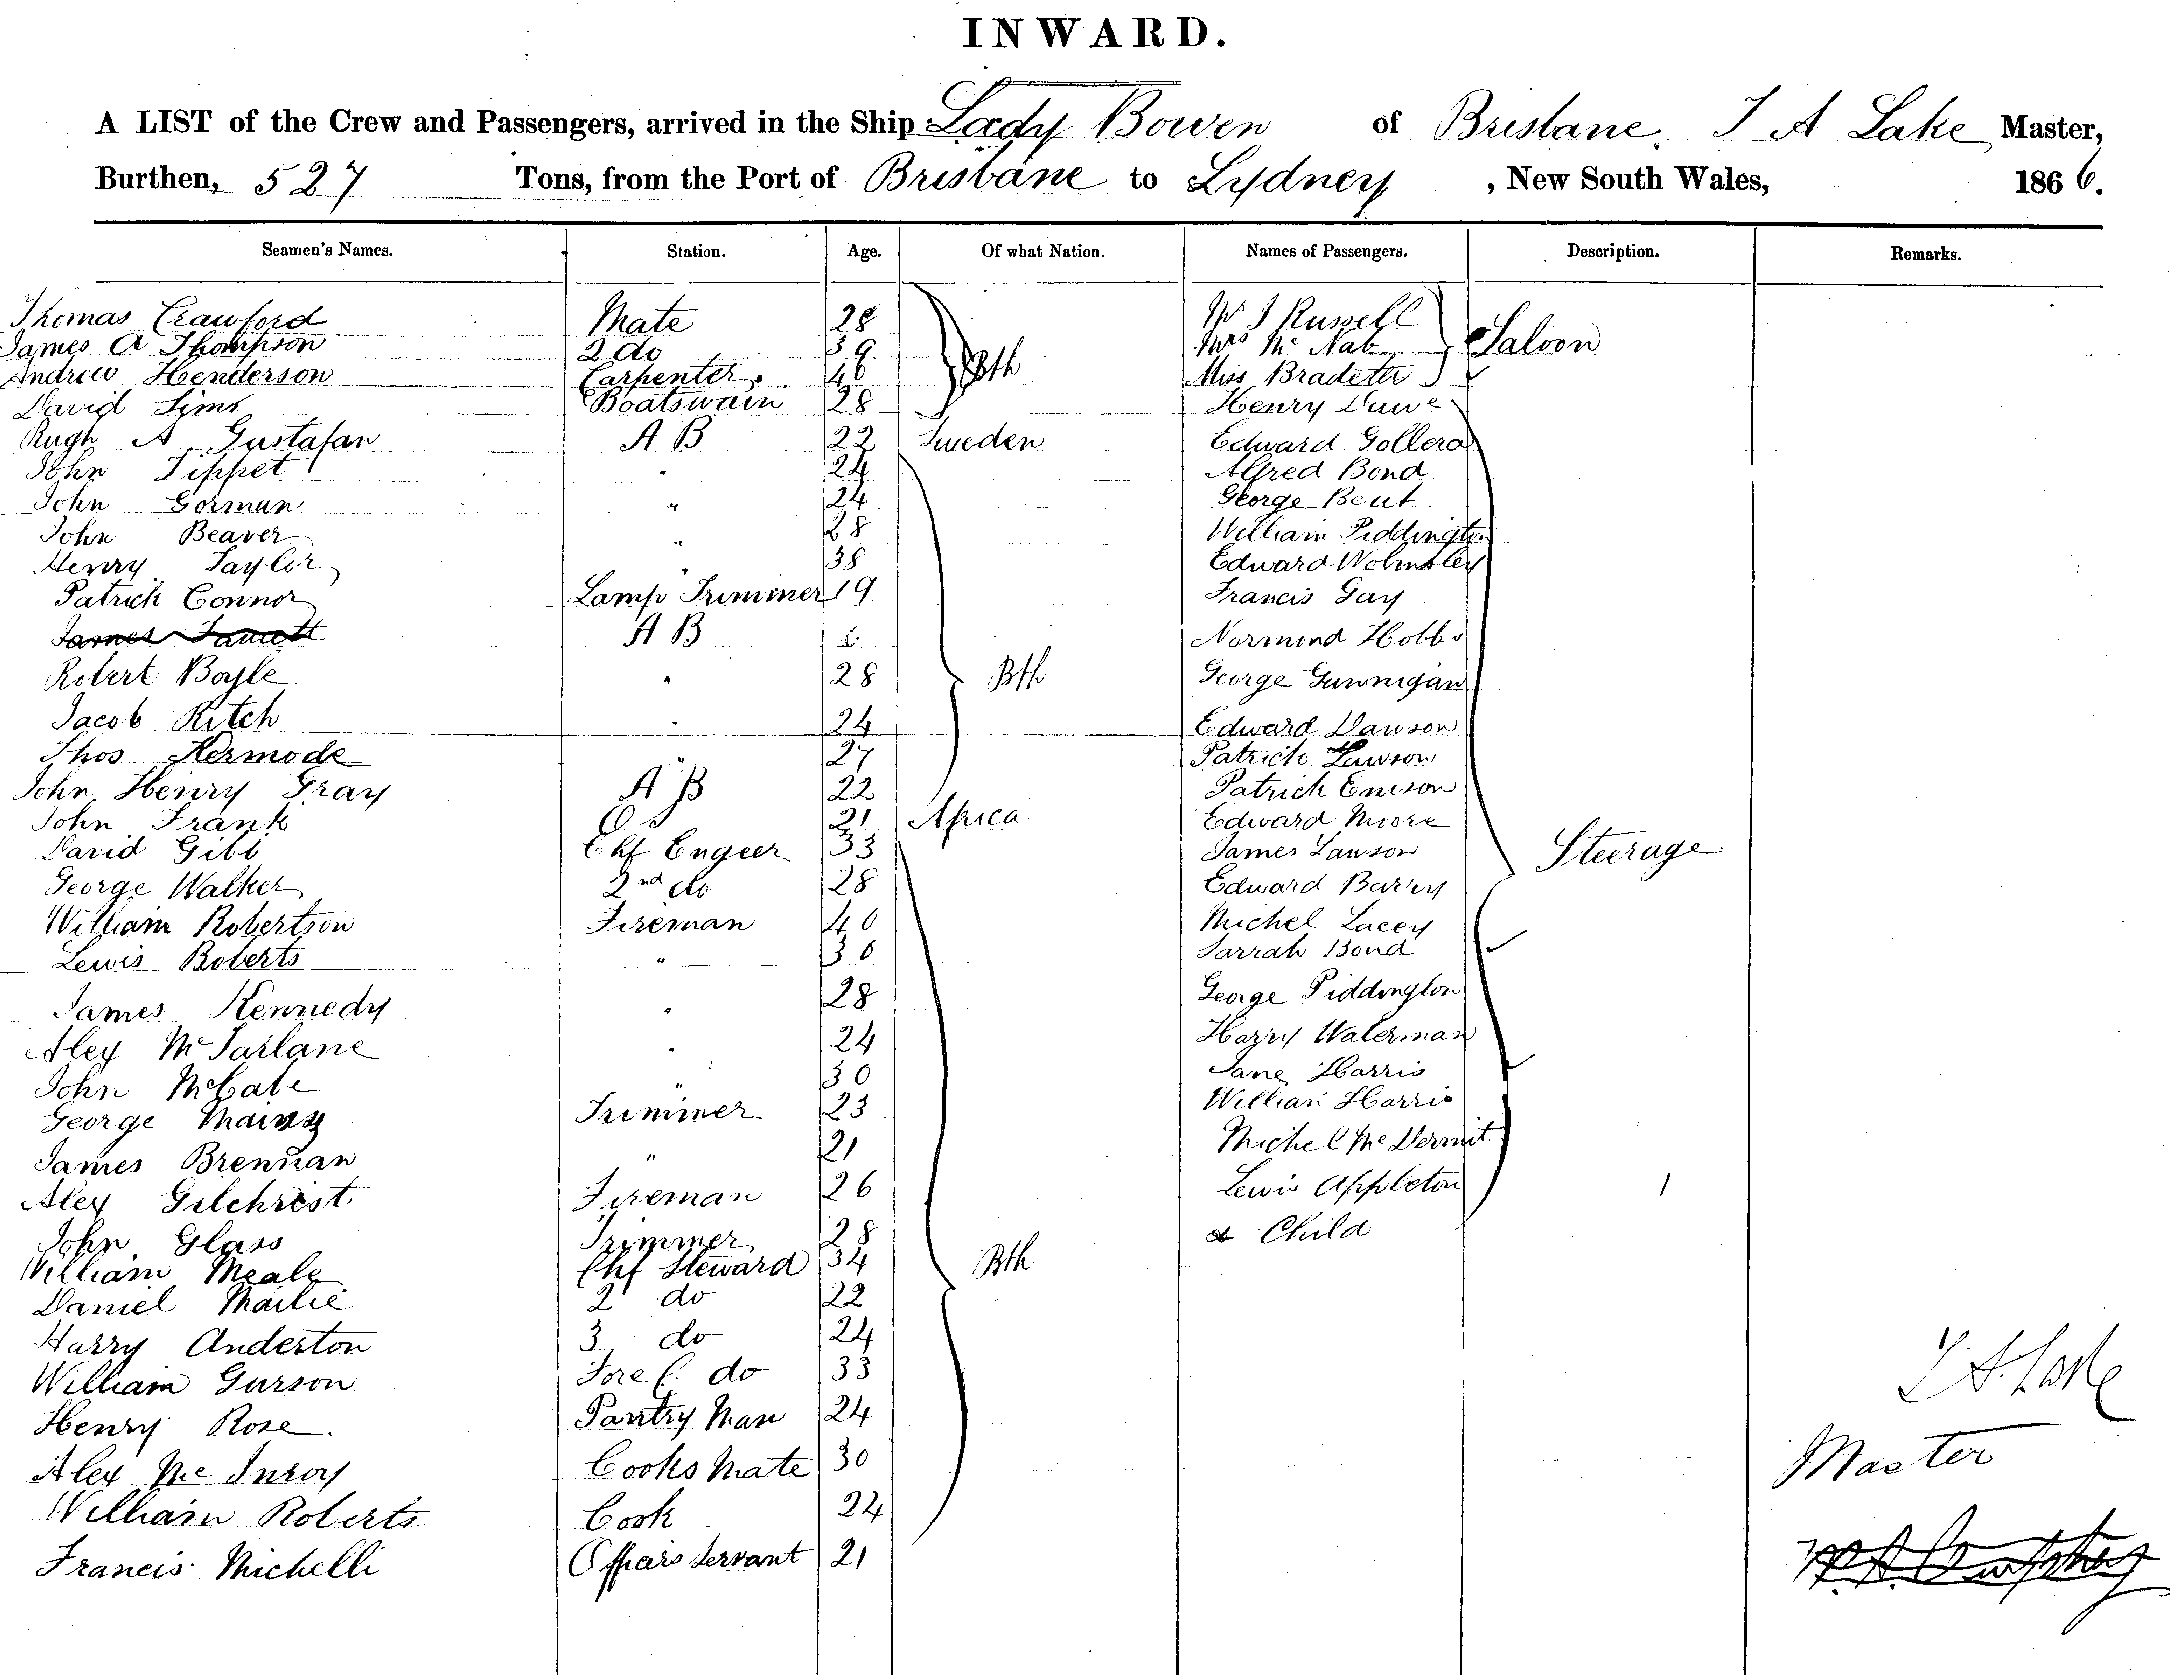 INWARD.
A LIST of the Crew and Passengers, arrived in the Ship Lady Bowen of Brisbane. J A Lake Master,
Burthen, 527 Tons, from the Port of Brisbane to Sydney, New South Wales, 1866.
Seamen's Names. Station. Age. Of what Nation. Names of Passengers. Description. Remarks.
Thomas Crawford Mate 28 Mr J Russell
James A Thompson 2 do 39 Bth Mrs Mc Nab Saloon
Andrew Henderson Carpenter 46 Miss
David Sims Boatswain 28 Henry
Hugh A Gustafan A B 22 Sweden Edward
John Tippet " 24 Alfred Bond
John Gorman " 24 George Bent
John Beaver " 28 William Piddington
Henry Taylor " 38 Edward Wolmsley
Patrick Connor Lamp Trimmer 19 Francis Gay
A B Normond Hobbs
Robert Boyle " 28 Bth George Gunnigan
Jacob Ritch " 24 Edward Dawson
Thos Kermode 27 Patrick Lawson
John Henry Gray A B 22 Patrick Enison
John Frank O S 21 Africa Edward Moore
David Gibb Chf Engeer 33 James Lawson Steerage
George Walker 2nd do 28 Edward Barry
William Robertson Fireman 40 Michel Lacey
Lewis Roberts " 30 Sarrah Bond
James Kennedy " 28 George Piddington
Alex McFarlane " 24 Harry Waterman
John McCabe " 30 Jane Harris
George Trimmer 23 William Harris
James Brennan " 21 Michel Mc Dermit
Alex Gilchrist Fireman 26 Lewis Appleton
John Glass Trimmer 28 & Child
William Meale Chf Steward 34 Bth
Daniel Mailie 2 do 22
Harry Anderton 3 do 24
William Gurson Fore C. do 33
Henry Rose. Pantry Man 24
Alex Mc Inroy Cooks Mate 30
William Roberts Cook 24
Francis Michelli Officers Servant 21
J A Lake
Master